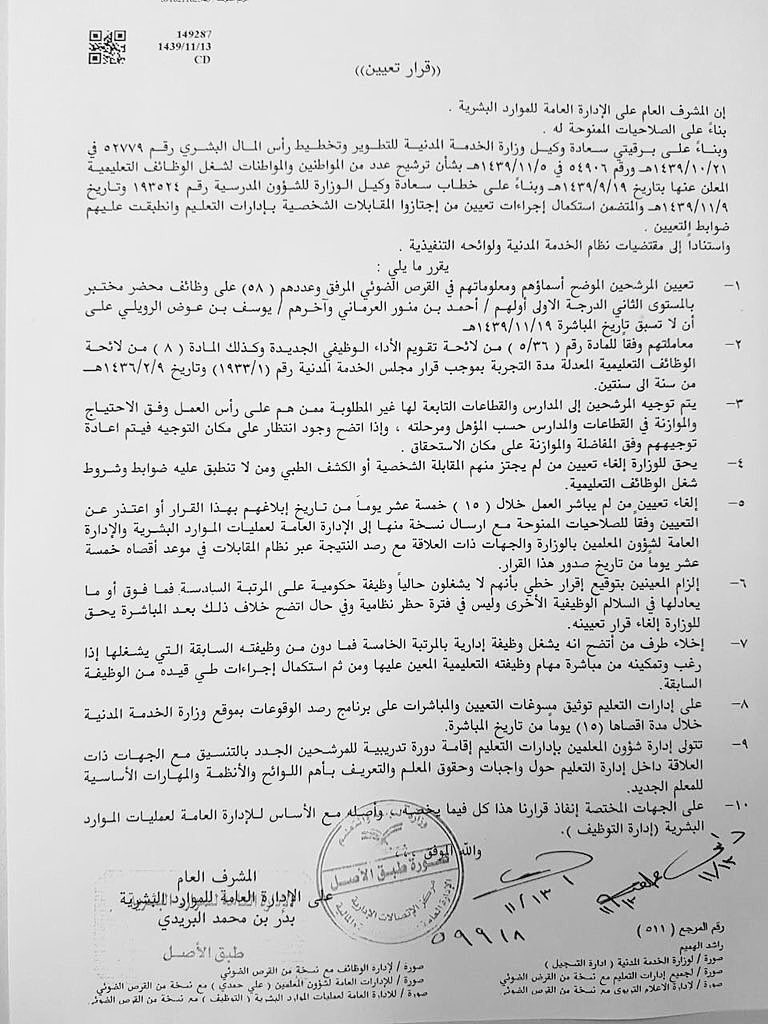 149287
1439/11/13
CD
((قرار تعيين))
إن المشرف العام على الإدارة العامة للموارد البشرية .
بناءً على الصلاحيات الممنوحة له .
وبناءً على برقيتي سعادة وكيل وزارة الخدمة المدنية للتطوير وتخطيط رأس المال البشري رقم ٥٢٧٧٩ في
١٤٣٩/١٠/٢١هـ ورقم ٥٤٩٠٦ في ١٤٣٩/١١/٥هـ بشأن ترشيح عدد من المواطنين والمواطنات لشغل الوظائف التعليمية
المعلن عنها بتاريخ ١٤٣٩/٩/١٩هـ وبناءً على خطاب سعادة وكيل الوزارة للشؤون المدرسية رقم ١٩٣٥٢٤ وتاريخ
١٤٣٩/١١/٩هـ والمتضمن استكمال إجراءات تعيين من إجتازوا المقابلات الشخصية بإدارات التعليم وانطبقت عليهم
ضوابط التعيين .
واستناداً إلى مقتضيات نظام الخدمة المدنية ولوائحه التنفيذية .
يقرر ما يلي :
١- تعيين المرشحين الموضح أسماؤهم ومعلوماتهم في القرص الضوئي المرفق وعددهم ( ٥٨) على وظائف محضر مختبر
بالمستوى الثاني الدرجة الاولى أولهم / أحمد بن منور العرماني وآخرهم / يوسف بن عوض الرويلي على
أن لا تسبق تاريخ المباشرة ١٤٣٩/١١/١٩هـ
٢- معاملتهم وفقاً للمادة رقم ( ٥/٣٦) من لائحة تقويم الأداء الوظيفي الجديدة وكذلك المادة ( ٨ ) من لائحة
الوظائف التعليمية المعدلة مدة التجربة بموجب قرار مجلس الخدمة المدنية رقم (١٩٣٣/١) وتاريخ ١٤٣٦/٢/٩هـ
من سنة الى سنتين.
٣- يتم توجيه المرشحين إلى المدارس والقطاعات التابعة لها غير المطلوبة ممن هم على رأس العمل وفق الاحتياج
والموازنة في القطاعات والمدارس حسب المؤهل ومرحلته ، وإذا اتضح وجود انتظار على مكان التوجيه فيتم اعادة
توجيههم وفق المفاضلة والموازنة على مكان الاستحقاق .
٤- يحق للوزارة إلغاء تعيين من لم يجتز منهم المقابلة الشخصية أو الكشف الطبي ومن لا تنطبق عليه ضوابط وشروط
شغل الوظائف التعليمية.
٥- إلغاء تعيين من لم يباشر العمل خلال ( ١٥ ) خمسة عشر يوماً من تاريخ إبلاغهم بهذا القرار أو اعتذر عن
التعيين وفقاً للصلاحيات الممنوحة مع ارسال نسخة منها إلى الإدارة العامة لعمليات الموارد البشرية والإدارة
العامة لشؤون المعلمين بالوزارة والجهات ذات العلاقة مع رصد النتيجة عبر نظام المقابلات في موعد أقصاه خمسة
عشر يوماً من تاريخ صدور هذا القرار.
٦- إلزام المعينين بتوقيع إقرار خطي بأنهم لا يشغلون حالياً وظيفة حكومية على المرتبة السادسة فما فوق أو ما
يعادلها في السلالم الوظيفية الأخرى وليس في فترة حظر نظامية وفي حال اتضح خلاف ذلك بعد المباشرة يحق
للوزارة إلغاء قرار تعيينه.
٧- إخلاء طرف من أتضح انه يشغل وظيفة إدارية بالمرتبة الخامسة فما دون من وظيفته السابقة التي يشغلها إذا
رغب وتمكينه من مباشرة مهام وظيفته التعليمية المعين عليها ومن ثم استكمال إجراءات طي قيده من الوظيفة
السابقة.
٨- على إدارات التعليم توثيق مسوغات التعيين والمباشرات على برنامج رصد الوقوعات بموقع وزارة الخدمة المدنية
خلال مدة اقصاها (١٥) يوماً من تاريخ المباشرة.
٩- تتولى إدارة شؤون المعلمين بإدارات التعليم إقامة دورة تدريبية للمرشحين الجدد بالتنسيق مع الجهات ذات
العلاقة داخل إدارة التعليم حول واجبات وحقوق المعلم والتعريف بأهم اللوائح والأنظمة والمهارات الأساسية
للمعلم الجديد.
١٠- على الجهات المختصة إنفاذ قرارنا هذا كل فيما يخصه ، وأصله مع الأساس للإدارة العامة لعمليات الموارد
البشرية (إدارة التوظيف ).
والله الموفق ،،،
المشرف العام
على الإدارة العامة للموارد البشرية
بدر بن محمد البريدي
صورة طبق الأصل
مركز الإتصالات الإدارية
طبق الأصل
١١/١٣
١١/١٣
١١/١٣
٥٩٩١٨
رقم المرجع ( ٥١١)
راشد الهميم
صورة / لوزارة الخدمة المدنية ( ادارة التسجيل )
صورة / لجميع إدارات التعليم مع نسخة من القرص الضوئي
صورة / لإدارة الاعلام التربوي مع نسخة من القرص الضوئي
صورة / لإدارة الوظائف مع نسخة من القرص الضوئي
صورة / للإدارات العامة لشؤون المعلمين ( علي حمدي ) مع نسخة من القرص الضوئي
صورة / للادارة العامة لعمليات الموارد البشرية ( التوظيف ) مع نسخة من القرص الضوئي